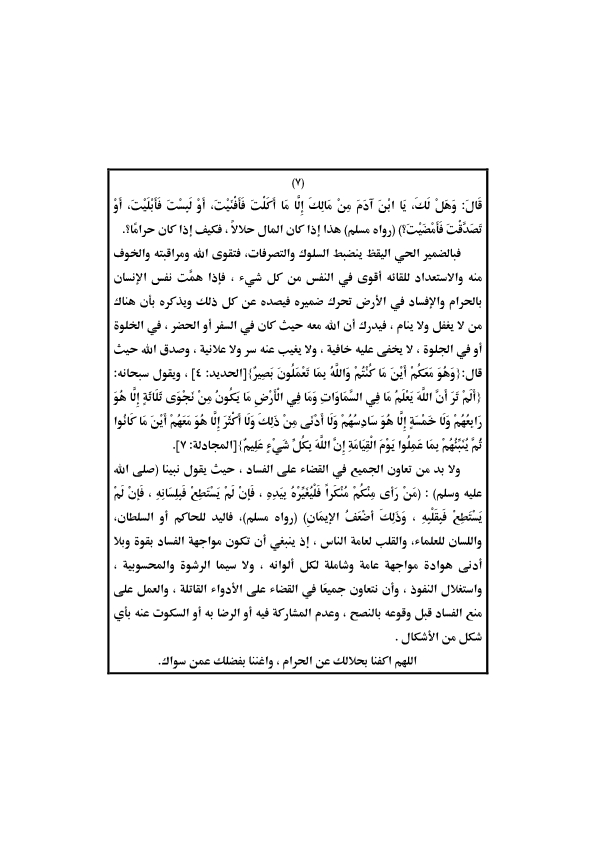 (٧)
قَالَ: وَهَلْ لَكَ، يَا ابْنَ آدَمَ مِنْ مَالِكَ إِلَّا مَا أَكَلْتَ فَأَفْنَيْتَ، أَوْ لَبِسْتَ فَأَبْلَيْتَ، أَوْ
تَصَدَّقْتَ فَأَمْضَيْتَ؟) (رواه مسلم) هذا إذا كان المال حلالاً ، فكيف إذا كان حرامًا؟.
فبالضمير الحي اليقظ ينضبط السلوك والتصرفات، فتقوى الله ومراقبته والخوف
منه والاستعداد للقائه أقوى في النفس من كل شيء ، فإذا همَّت نفس الإنسان
بالحرام والإفساد في الأرض تحرك ضميره فيصده عن كل ذلك ويذكره بأن هناك
من لا يغفل ولا ينام ، فيدرك أن الله معه حيث كان في السفر أو الحضر ، في الخلوة
أو في الجلوة ، لا يخفى عليه خافية ، ولا يغيب عنه سر ولا علانية ، وصدق الله حيث
قال:{وَهُوَ مَعَكُمْ أَيْنَ مَا كُنْتُمْ وَاللَّهُ بِمَا تَعْمَلُونَ بَصِيرٌ}[الحديد: ٤] ، ويقول سبحانه:
{أَلَمْ تَرَ أَنَّ اللَّهَ يَعْلَمُ مَا فِي السَّمَاوَاتِ وَمَا فِي الْأَرْضِ مَا يَكُونُ مِنْ نَجْوَى ثَلَاثَةٍ إِلَّا هُوَ
رَابِعُهُمْ وَلَا خَمْسَةٍ إِلَّا هُوَ سَادِسُهُمْ وَلَا أَدْنَى مِنْ ذَلِكَ وَلَا أَكْثَرَ إِلَّا هُوَ مَعَهُمْ أَيْنَ مَا كَانُوا
ثُمَّ يُنَبِّئُهُمْ بِمَا عَمِلُوا يَوْمَ الْقِيَامَةِ إِنَّ اللَّهَ بِكُلِّ شَيْءٍ عَلِيمٌ}[المجادلة: ٧].
ولا بد من تعاون الجميع في القضاء على الفساد ، حيث يقول نبينا (صلى الله
عليه وسلم) : (مَنْ رَأى مِنْكُمْ مُنْكَراً فَلْيُغَيِّرْهُ بِيَدِهِ ، فَإِنْ لَمْ يَسْتَطِعْ فَبِلِسَانِهِ ، فَإِنْ لَمْ
يَسْتَطِعْ فَبِقَلْبِهِ ، وَذَلِكَ أَضْعَفُ الإِيمَانِ) (رواه مسلم)، فاليد للحاكم أو السلطان،
واللسان للعلماء، والقلب لعامة الناس ، إذ ينبغي أن تكون مواجهة الفساد بقوة وبلا
أدنى هوادة مواجهة عامة وشاملة لكل ألوانه ، ولا سيما الرشوة والمحسوبية ،
واستغلال النفوذ ، وأن نتعاون جميعًا في القضاء على الأدواء القاتلة ، والعمل على
منع الفساد قبل وقوعه بالنصح ، وعدم المشاركة فيه أو الرضا به أو السكوت عنه بأي
شكل من الأشكال .
اللهم اكفنا بحلالك عن الحرام ، واغننا بفضلك عمن سواك.